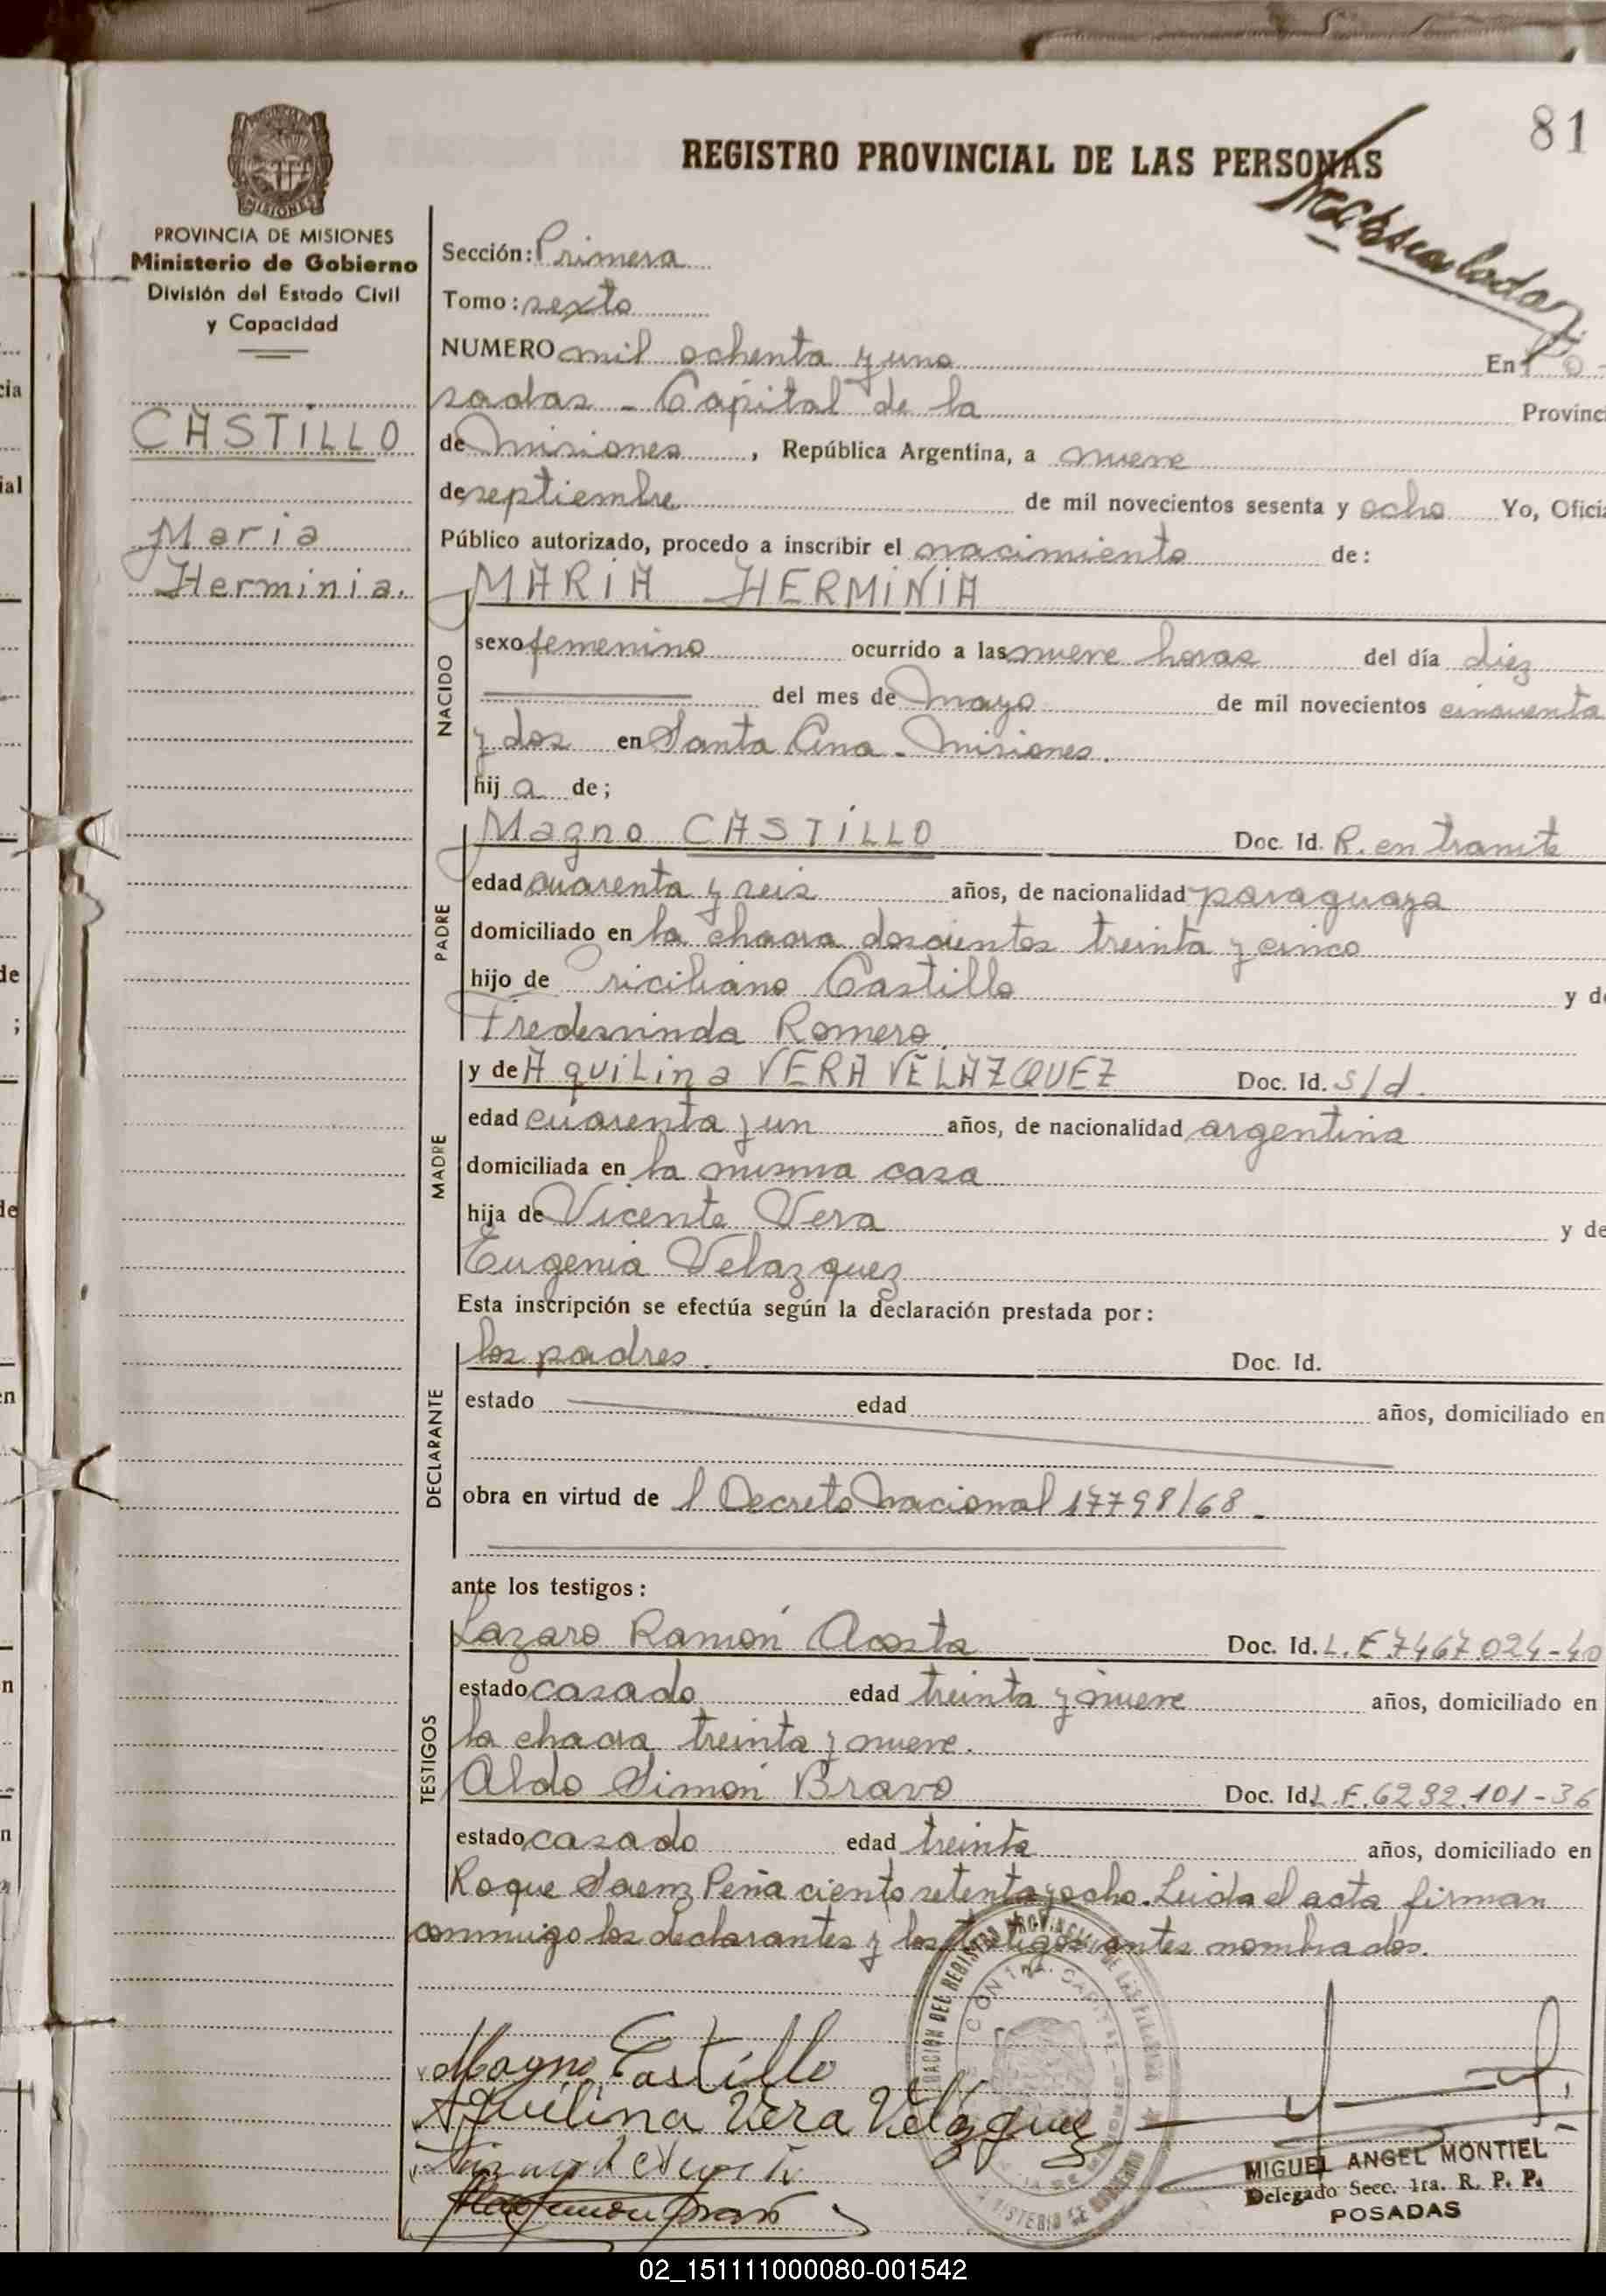 81
REGISTRO PROVINCIAL DE LAS PERSONAS
MISIONES
PROVINCIA DE MISIONES
Ministerio de Gobierno
División del Estado Civil
y Capacidad
CASTILLO
Maria
Herminia.
Sección: Primera
Tomo: sexto
NUMERO mil ochenta y uno En Po-
sadas - Capital de la Provinci
de Misiones, República Argentina, a nueve
de septiembre de mil novecientos sesenta y ocho Yo, Oficia
Público autorizado, procedo a inscribir el nacimiento de:
NACIDO
MARIA HERMINIA
sexo femenino ocurrido a las nueve horas del día diez
del mes de Mayo de mil novecientos cincuenta
y dos en Santa Ana - Misiones.
hij a de;
PADRE
Magno CASTILLO Doc. Id. R. en tramite
edad cuarenta y seis años, de nacionalidad paraguaya
domiciliado en la chacra doscientos treinta y cinco
hijo de Priciliano Castillo y de
Fredesvinda Romero.
MADRE
y de Aquilina VERA VELAZQUEZ Doc. Id. s/d.
edad cuarenta y un años, de nacionalidad argentina
domiciliada en la misma casa
hija de Vicente Vera y de
Eugenia Velazquez
Esta inscripción se efectúa según la declaración prestada por:
DECLARANTE
los padres. Doc. Id.
estado edad años, domiciliado en
obra en virtud de l Decreto Nacional 17798/68.
ante los testigos:
TESTIGOS
Lazaro Ramón Acosta Doc. Id. L.E 7467.024-40
estado casado edad treinta y nueve años, domiciliado en
la chacra treinta y nueve.
Aldo Simón Bravo Doc. Id. L.E. 6292.101-36
estado casado edad treinta años, domiciliado en
Roque Saenz Peña ciento setenta y ocho. Leida el acta firman
conmigo los declarantes y los testigos antes nombrados.
Magno Castillo
Aquilina Vera Velazquez
MIGUEL ANGEL MONTIEL
Delegado Secc. 1ra. R. P. P.
POSADAS
02_151111000080-001542